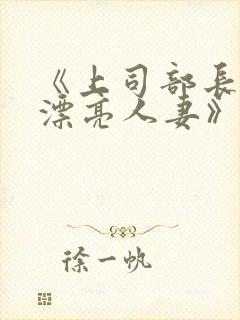 《上司部长
漂亮人妻》
徐一帆